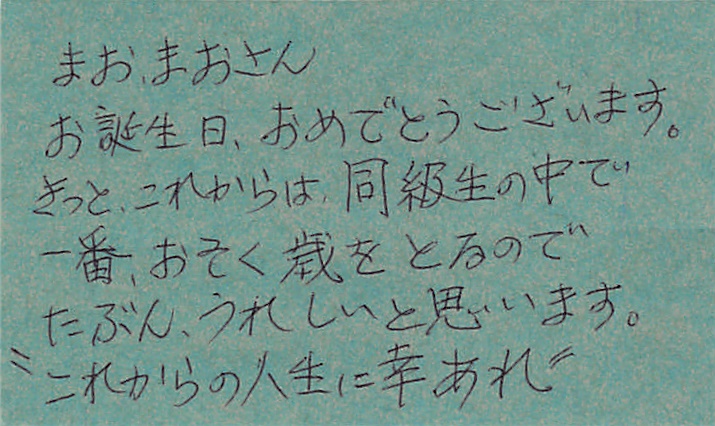 まお、まおさん
お誕生日、おめでとうございます。
きっと、これからは、同級生の中で
一番、おそく歳をとるので
たぶん、うれしいと思います。
〝これからの人生に幸あれ〞